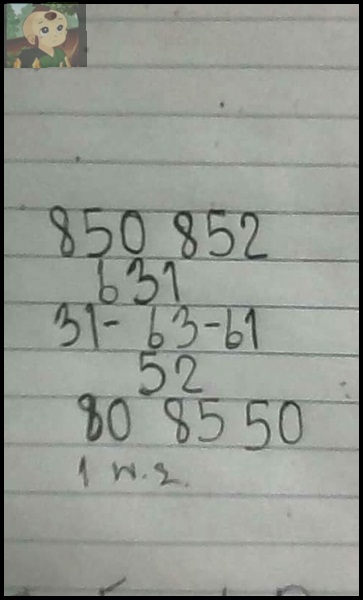 850 852
631
31- 63-61
52
80 85 50
1 พ.ย.